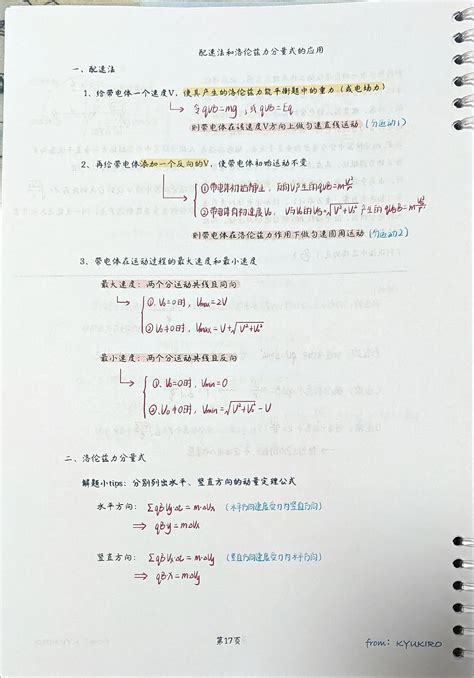 配速法和洛伦兹力分量式的应用
一、配速法
1、给带电体一个速度V,使其产生的洛伦兹力能平衡题中的重力(或电场力)
令qVB=mg,或qVB=Eq
则带电体在该速度V方向上做匀速直线运动(分运动1)
2、再给带电体添加一个反向的V,使带电体初始运动不变
①带电体初始静止,反向V产生的qVB=m V²/r
②带电体有初速度V₀,V与V₀的V合=√V²+V₀² 产生的qV合B=m V合²/r
则带电体在洛伦兹力作用下做匀速圆周运动(分运动2)
3、带电体在运动过程的最大速度和最小速度
最大速度:两个分运动共线且同向
①.V₀=0时,Vmax=2V
②V₀≠0时,Vmax=V+√V²+V₀²
最小速度:两个分运动共线且反向
①.V₀=0时,Vmin=0
②.V₀≠0时,Vmin=√V²+V₀²-V
二、洛伦兹力分量式
解题小tips:分别列出水平、竖直方向的动量定理公式
水平方向:ΣqBVy·Δt=m·ΔVx (水平方向速度受力为竖直方向)
⇒ qB·y=m·ΔVx
竖直方向:ΣqBVx·Δt=m·ΔVy (竖直方向速度受力为水平方向)
⇒ qB·X=m·ΔVy
第17页
from: KYUKIRO